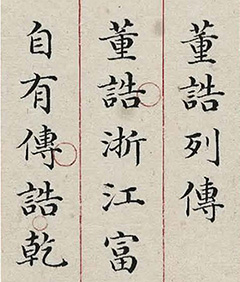 董誥列傳
董誥浙江富
自有傳誥乾